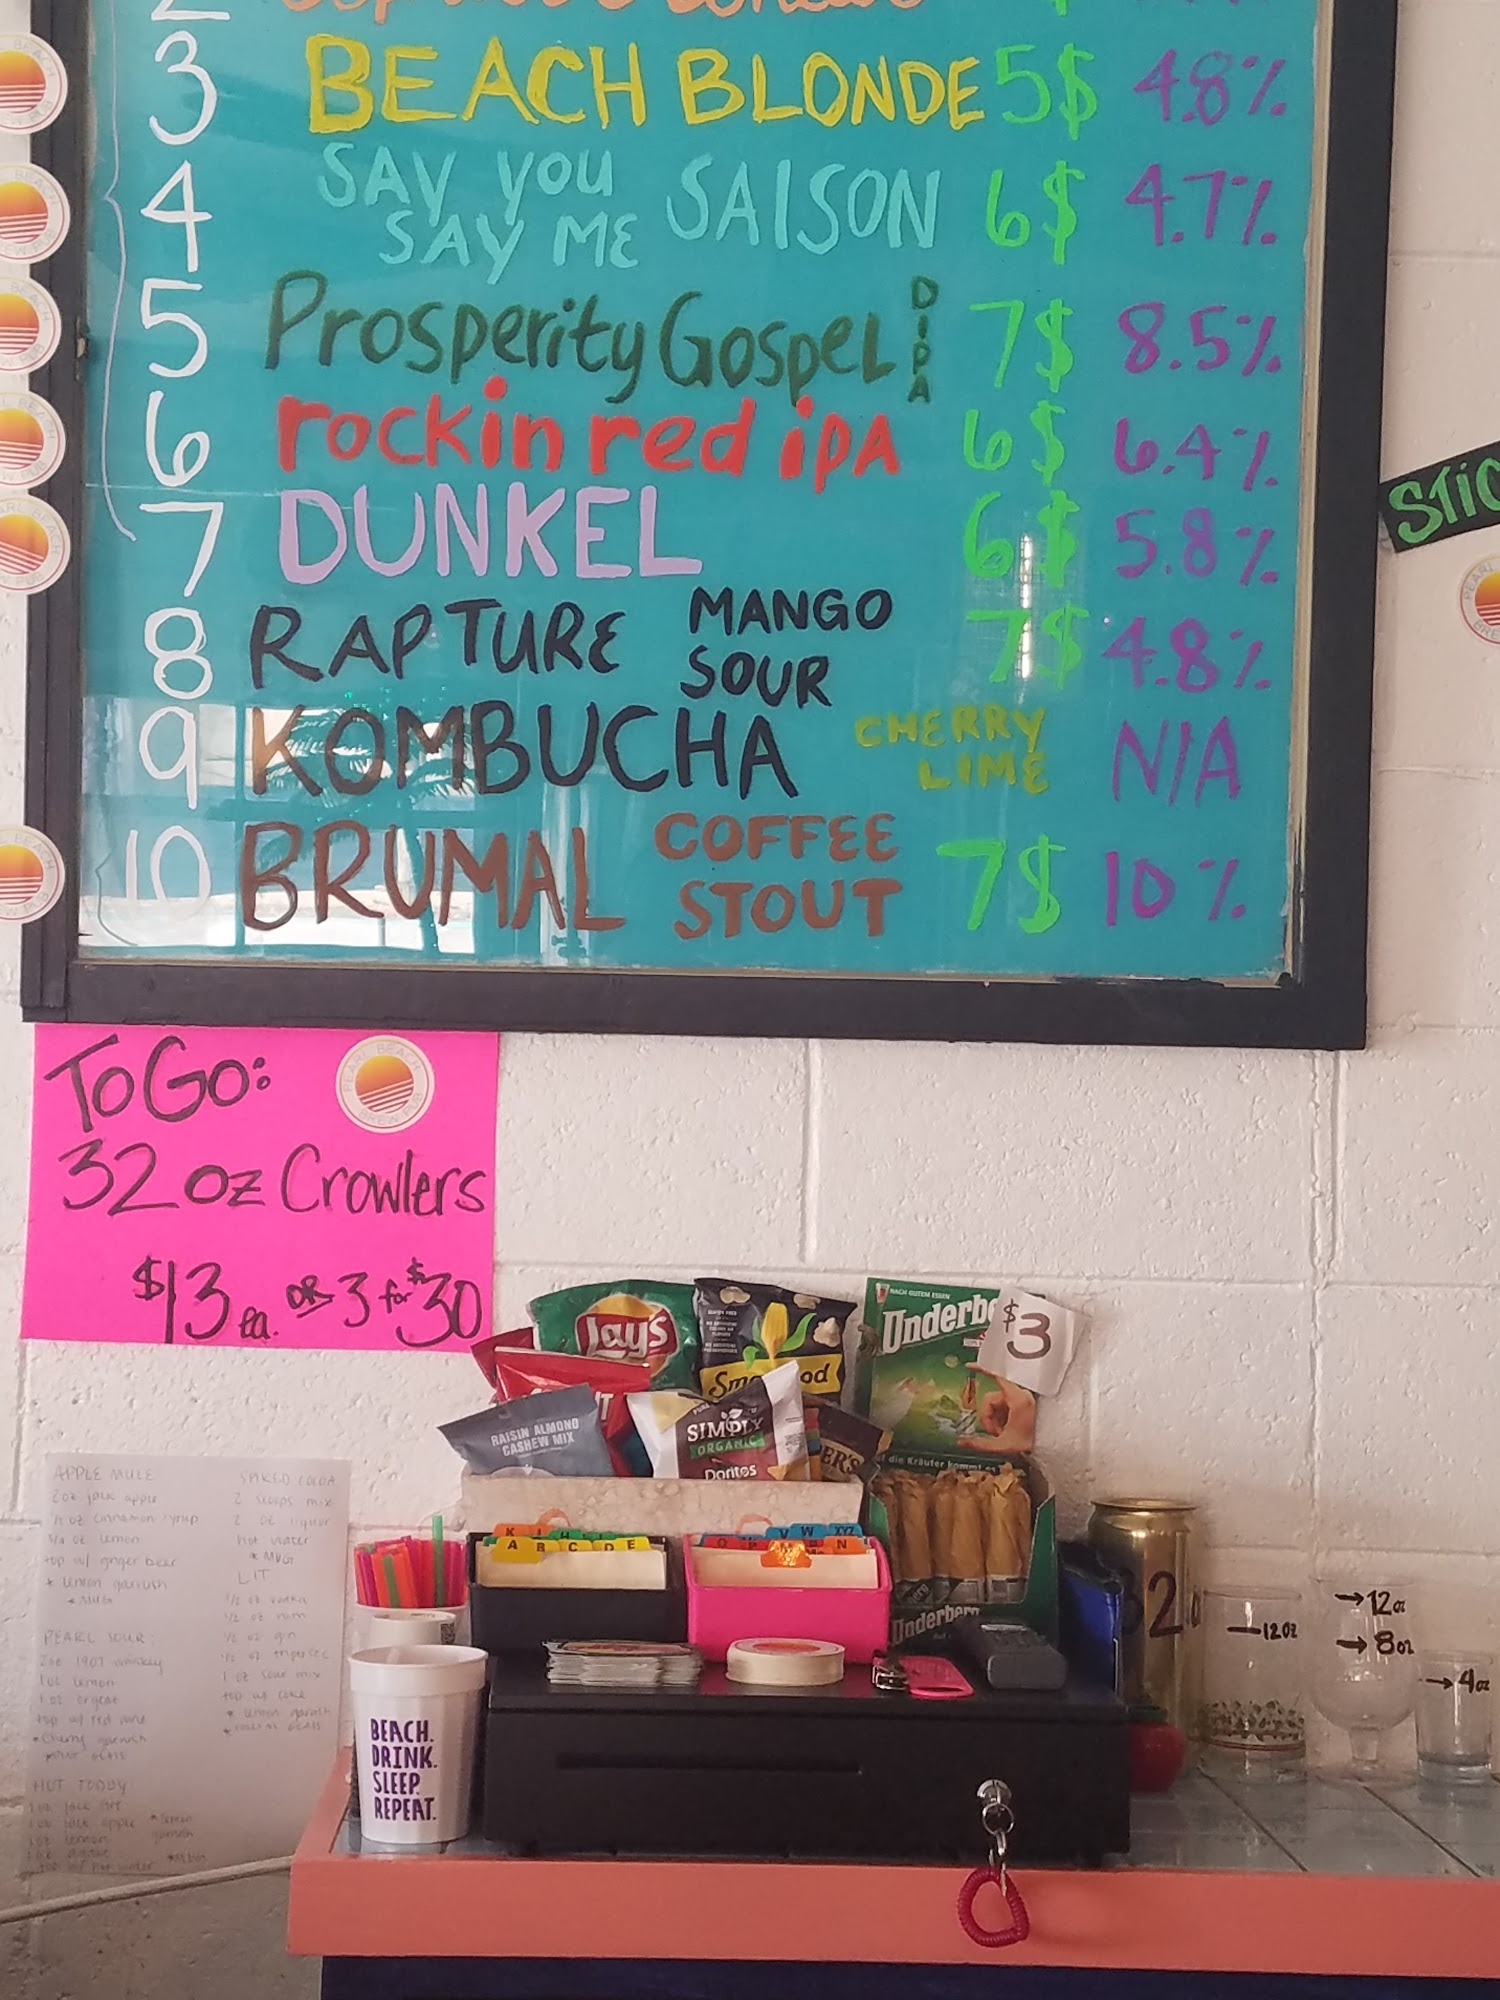 3 BEACH BLONDE 5$ 4.8%
4 SAY YOU SAY ME SAISON 6$ 4.7%
5 Prosperity Gospel DIPA 7$ 8.5%
6 rockin red ipA 6$ 6.4%
7 DUNKEL 6$ 5.8%
8 RAPTURE MANGO SOUR 7$ 4.8%
9 KOMBUCHA CHERRY LIME N/A
10 BRUMAL COFFEE STOUT 7$ 10%
To Go:
PEARL BEACH BREW PUB
32 oz Crowlers
$13 ea. OR 3 for $30
Lay's
NACH GUTEM ESSEN
Underbe
$3
RAISIN ALMOND
CASHEW MIX
SIMPLY
ORGANIC
Doritos
die Kräuter
K I H
A B C D E
V W XYZ
O P
N
Underberg
APPLE MULE
2oz jack apple
oz cinnamon syrup
3/4 oz lemon
top w/ ginger beer
* lemon garnish
* MUG
PEARL SOUR
2oz 1907 whiskey
1oz lemon
1oz orgeat
top w/ red wine
*Cherry garnish
HOT TODDY
1oz jack apple
oz lemon
top w/ hot water
SPIKED COCOA
2 scoops mix
2 oz liquor
hot water
* MUG
LIT
1/2 oz vodka
1/2 oz rum
1/2 oz gin
1/2 oz triplesec
1 oz sour mix
top w/ coke
* lemon garnish
BEACH.
DRINK.
SLEEP.
REPEAT.
32
12oz
→12oz
→8oz
→4oz